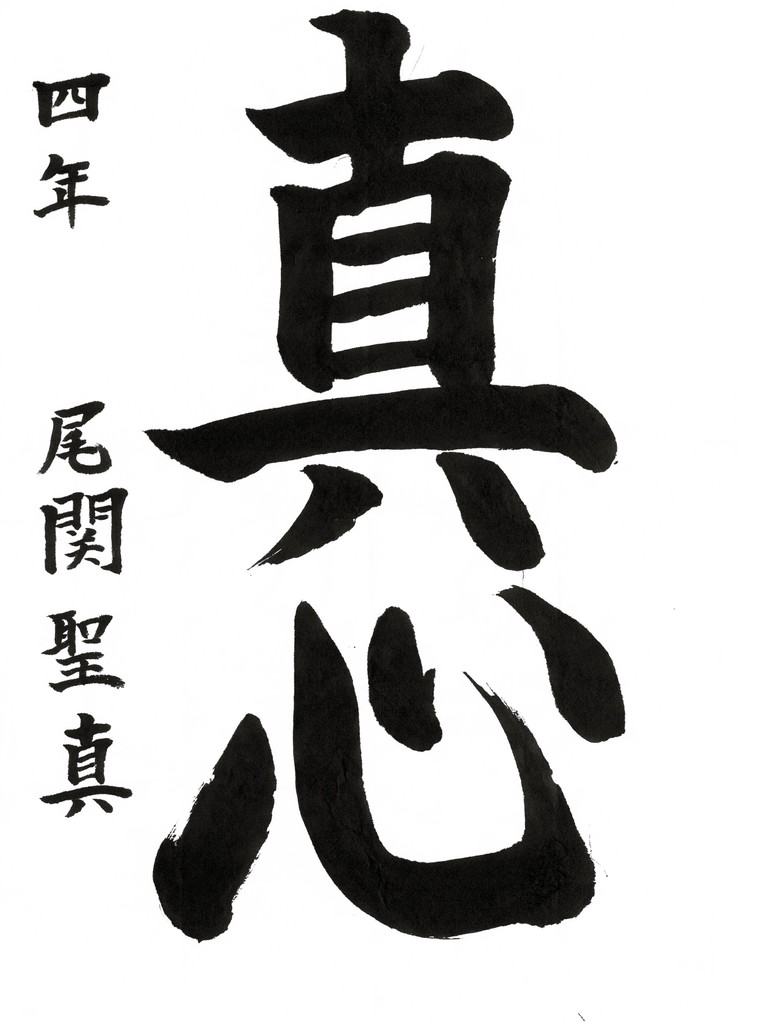 真心
四年 尾関聖真